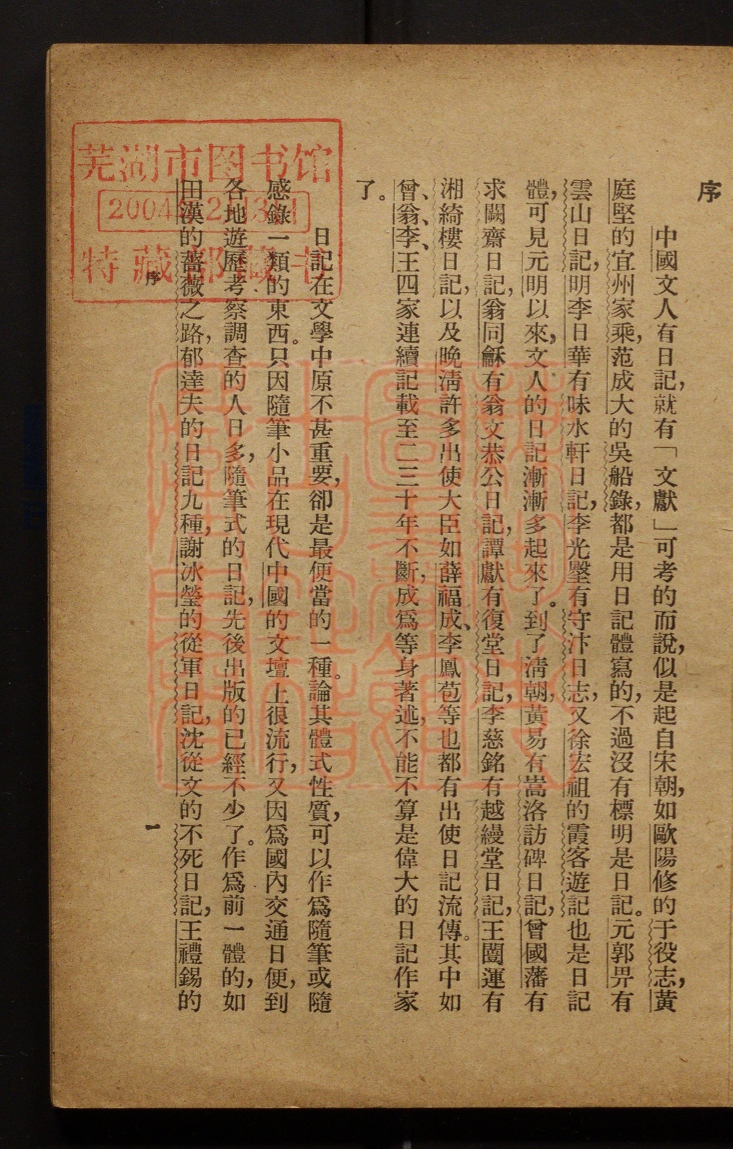 序
中國文人有日記，就有「文獻」可考的而說，似是起自宋朝，如歐陽修的于役志，黃
庭堅的宜州家乘，范成大的吳船錄，都是用日記體寫的，不過沒有標明是日記。元郭畀有
雲山日記，明李日華有味水軒日記，李光壂有守汴日志，又徐宏祖的霞客遊記也是日記
體，可見元明以來，文人的日記漸漸多起來了。到了淸朝，黃易有嵩洛訪碑日記，曾國藩有
求闕齋日記，翁同龢有翁文恭公日記，譚獻有復堂日記，李慈銘有越縵堂日記，王闓運有
湘綺樓日記，以及晚淸許多出使大臣如薛福成、李鳳苞等也都有出使日記流傳。其中如
曾、翁、李、王四家連續記載至二三十年不斷，成爲等身著述，不能不算是偉大的日記作家
了。
日記在文學中原不甚重要，卻是最便當的一種。論其體式性質，可以作爲隨筆或隨
感錄一類的東西。只因隨筆小品在現代中國的文壇上很流行，又因爲國內交通日便，到
各地遊歷考察調查的人日多，隨筆式的日記，先後出版的已經不少了。作爲前一體的，如
田漢的薔薇之路，郁達夫的日記九種，謝冰瑩的從軍日記，沈從文的不死日記，王禮錫的
序
一
芜湖市图书馆
2004
特藏部藏书